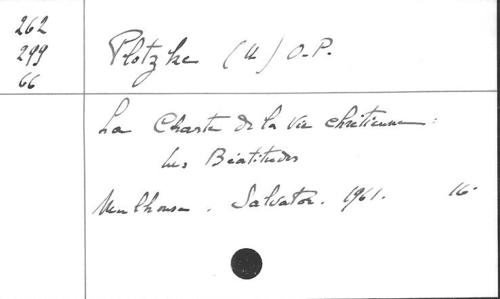 262
299
66
Plotzke (U) O.P.
La Charte de la vie chrétienne :
Les Béatitudes
Mulhouse. Salvator. 1961. 16°